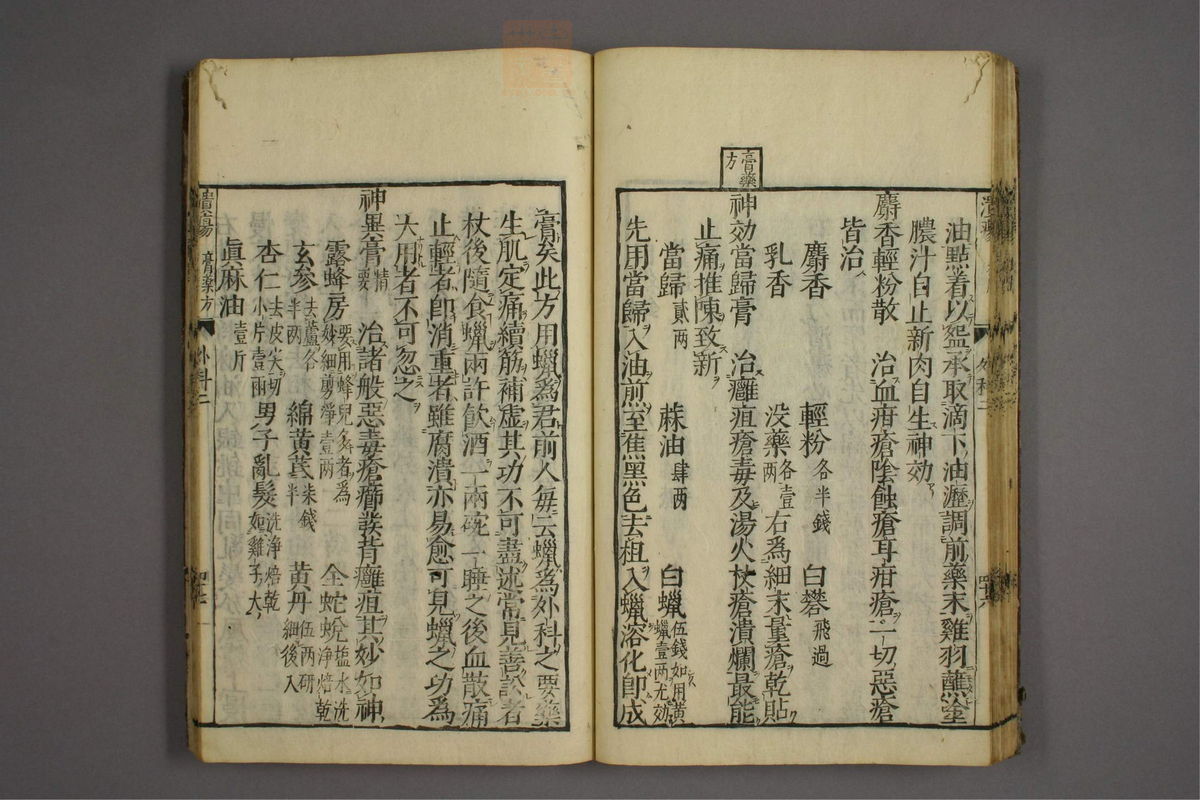 油點着以盌承取滴下油瀝調前藥末雞羽蘸塗
膿汁自止新肉自生神効
麝香輕粉散 治血疳瘡陰蝕瘡耳疳瘡一切惡瘡
皆治
麝香 輕粉各半錢 白礬飛過
乳香 没藥各壹两 右爲細末量瘡乾貼
膏藥方
神効當歸膏 治癰疽瘡毒及湯火杖瘡潰爛最能
止痛推陳致新
當歸貳两 蔴油肆两 白蠟伍錢如用黄蠟壹两尤効
先用當歸入油煎至焦黑色去柤入蠟溶化即成
膏矣此方用蠟爲君前人每云蠟爲外科之要藥
生肌定痛續筋補虚其功不可盡述常見善訟者
杖後隨食蠟兩許飲酒一兩碗一睡之後血散痛
止輕者即消重者雖腐潰亦易愈可見蠟之功爲
大用者不可忽之
神異膏精要 治諸般惡毒瘡癤發背癰疽其妙如神
露蜂房要用蜂兒多者爲妙細剪淨壹两 全蛇蛻塩水洗淨焙乾
玄參去蘆各半两 綿黄芪柒錢半 黄丹伍两研細後入
杏仁去皮尖切小片壹兩 男子亂髮洗浄焙乾如雞子大
眞麻油壹斤
膏藥方 外科二